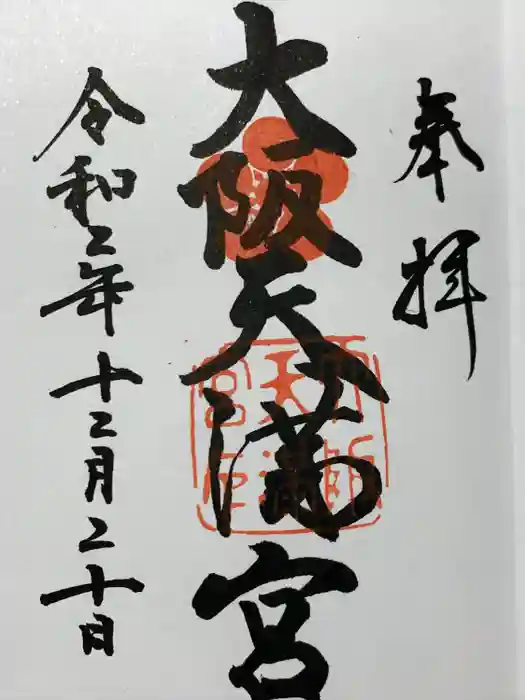 奉拝
大阪天満宮
令和二年十二月二十日